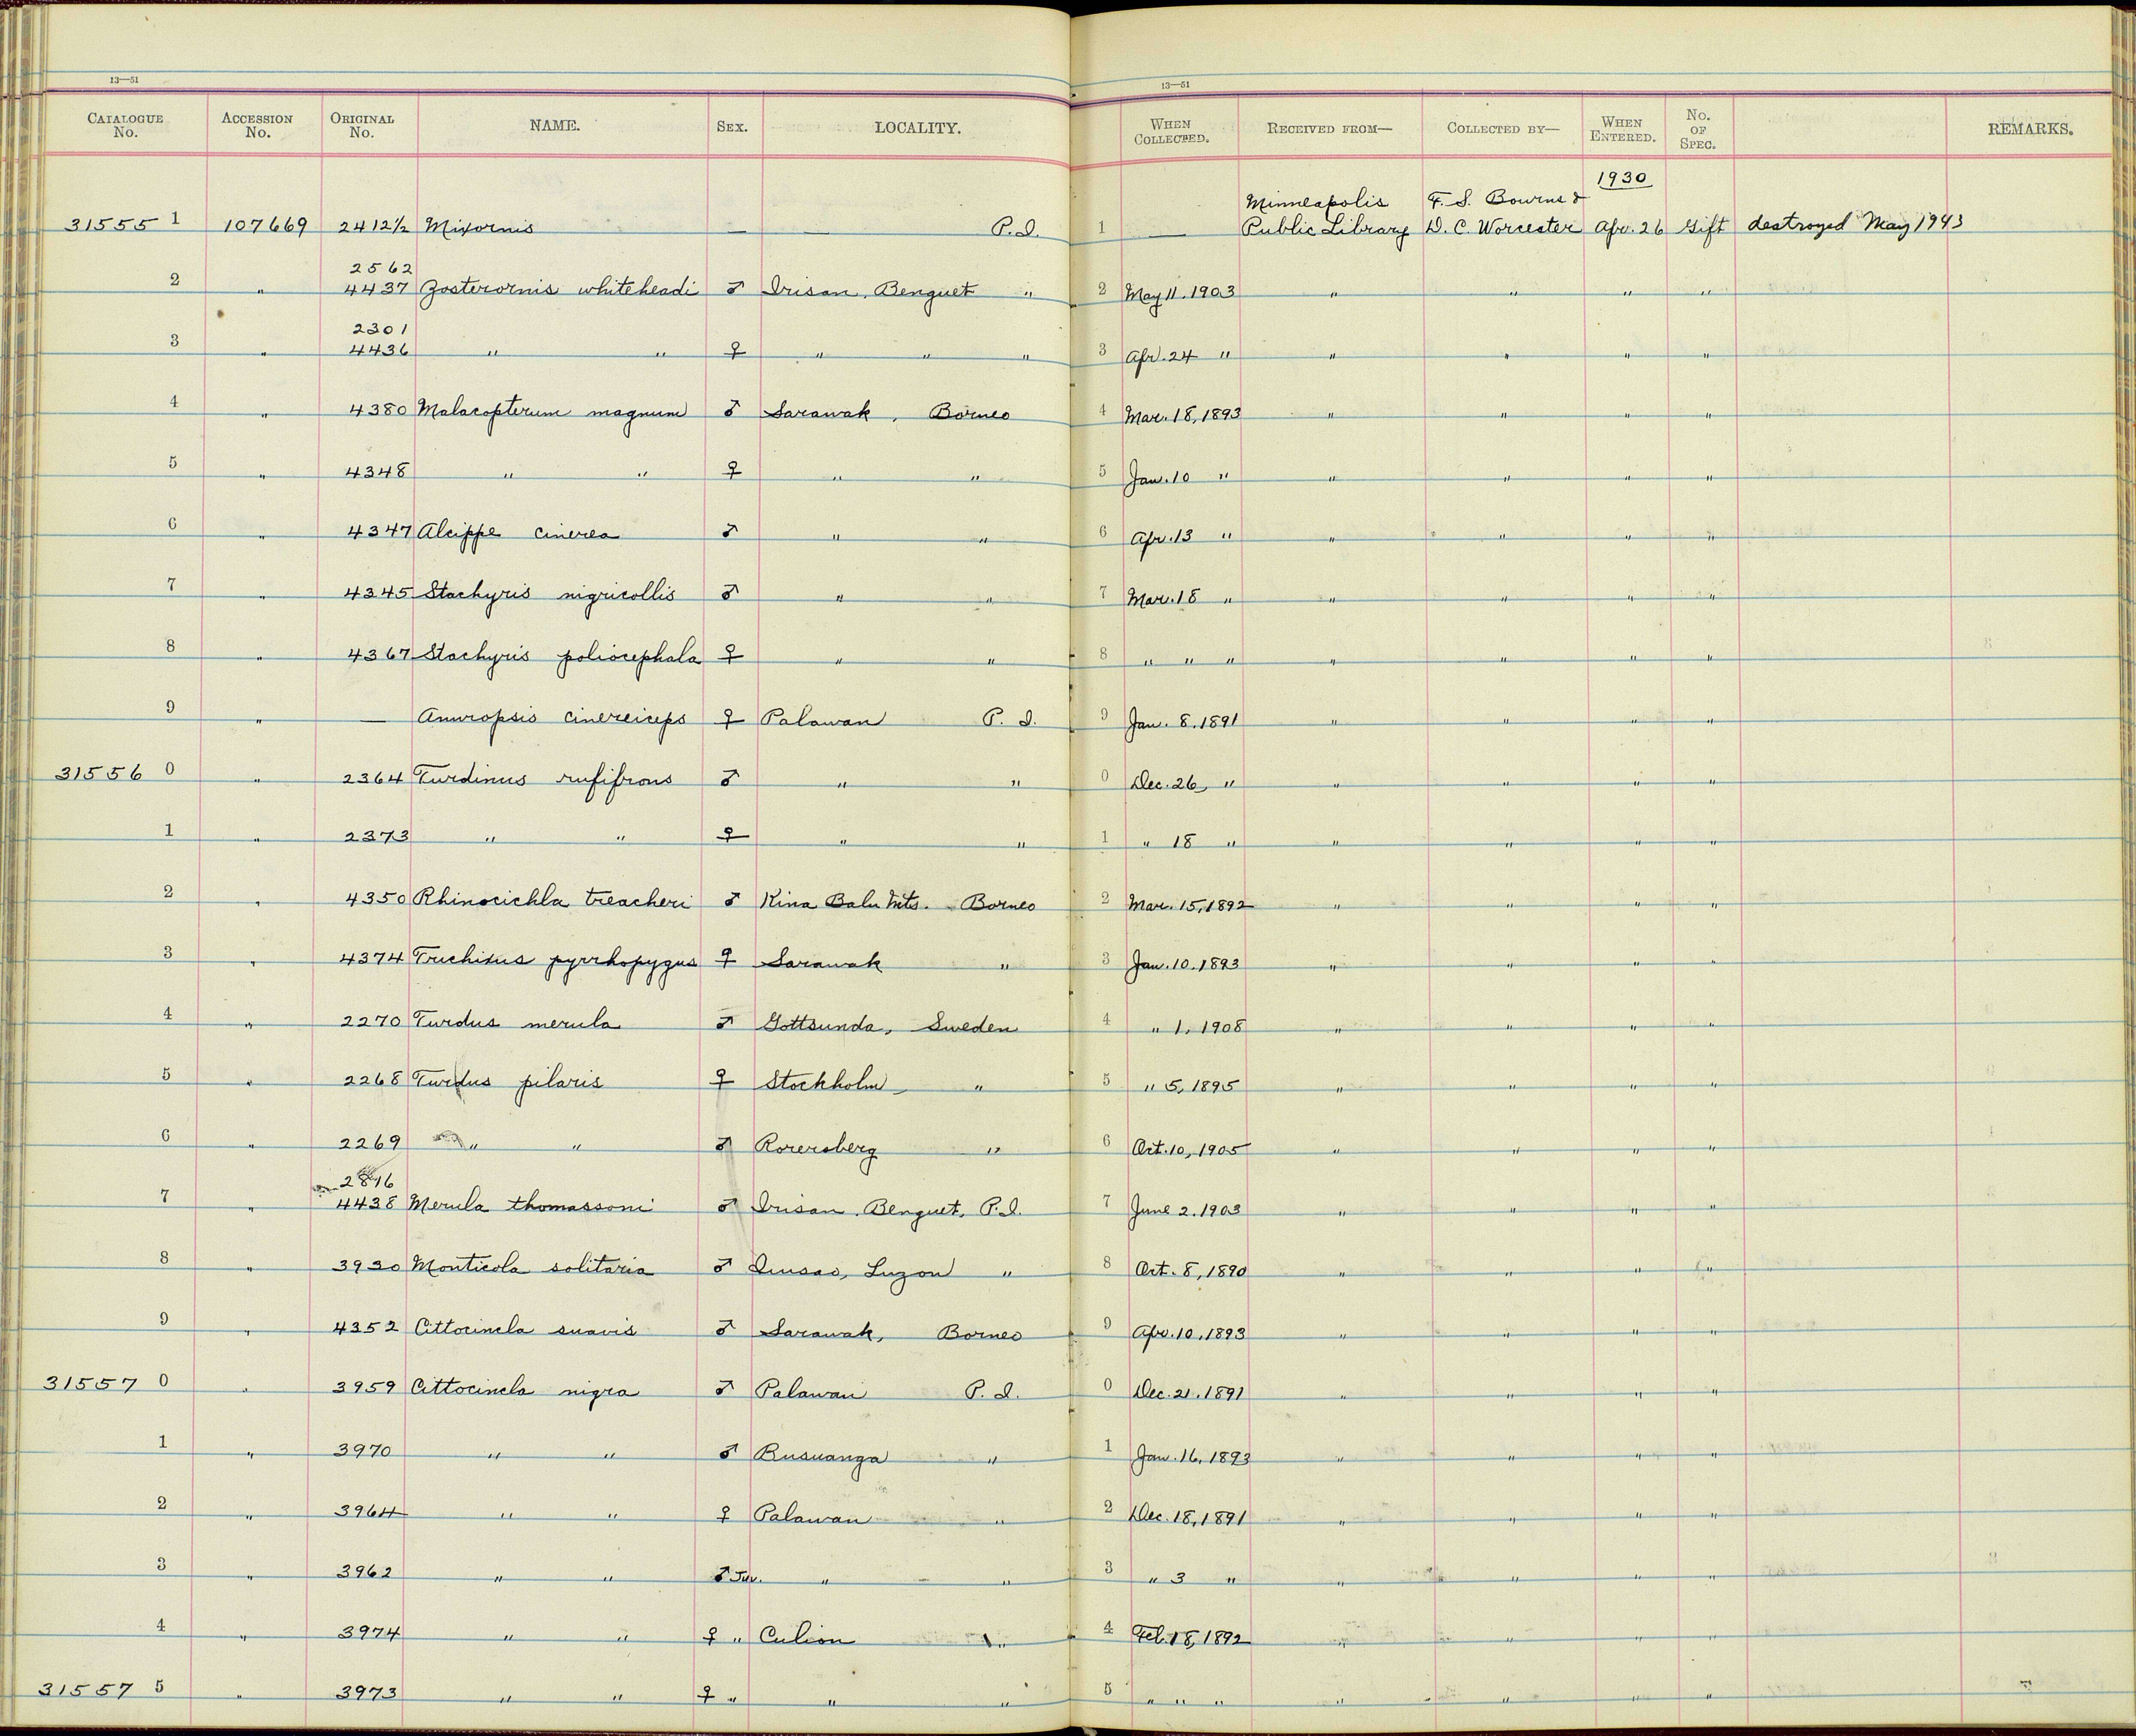 13—51 13—51
CATALOGUE No. ACCESSION No. ORIGINAL No. NAME. SEX. LOCALITY. WHEN COLLECTED. RECEIVED FROM— COLLECTED BY— WHEN ENTERED. No. OF SPEC. REMARKS.
1930
Minneapolis F. S. Bourns &
31555 1 107669 2412½ Mixornis — — P.I. 1 — Public Library D. C. Worcester Apr. 26 Gift destroyed May 1943
2562
2 " 4437 Zosterornis whiteheadi ♂ Irisan, Benguet " 2 May 11. 1903 " " " "
2301
3 " 4436 " " ♀ " " " 3 Apr. 24 " " " " "
4 " 4380 Malacopterum magnum ♂ Sarawak, Borneo 4 Mar. 18, 1893 " " " "
5 " 4348 " " ♀ " " 5 Jan. 10 " " " " "
6 " 4347 Alcippe cinerea ♂ " " 6 Apr. 13 " " " " "
7 " 4345 Stachyris nigricollis ♂ " " 7 Mar. 18 " " " " "
8 " 4367 Stachyris poliocephala ♀ " " 8 " " " " " " "
9 " — Anuropsis cinereiceps ♀ Palawan P. I. 9 Jan. 8. 1891 " " " "
31556 0 " 2364 Turdinus rufifrons ♂ " " 0 Dec. 26, " " " " "
1 " 2373 " " ♀ " " 1 " 18 " " " " "
2 " 4350 Rhinocichla treacheri ♂ Kina Balu Mts. Borneo 2 Mar. 15, 1892 " " " "
3 " 4374 Trichixus pyrrhopygus ♀ Sarawak " 3 Jan. 10. 1893 " " " "
4 " 2270 Turdus merula ♂ Gottsunda, Sweden 4 " 1, 1908 " " " "
5 " 2268 Turdus pilaris ♀ Stockholm " 5 " 5, 1895 " " " "
6 " 2269 " " ♂ Rorersberg " 6 Oct. 10, 1905 " " " "
2816
7 " 4438 Merula thomassoni ♂ Irisan, Benguet, P.I. 7 June 2. 1903 " " " "
8 " 3930 Monticola solitaria ♂ Luzon " 8 Oct. 8, 1890 " " " "
9 " 4352 Cittocincla suavis ♂ Sarawak, Borneo 9 Apr. 10, 1893 " " " "
31557 0 " 3959 Cittocincla nigra ♂ Palawan P. I. 0 Dec. 21. 1891 " " " "
1 " 3970 " " ♂ Busuanga " 1 Jan. 16, 1893 " " " "
2 " 3964 " " ♀ Palawan " 2 Dec. 18, 1891 " " " "
3 " 3962 " " ♂ Juv. " " 3 " 3 " " " " "
4 " 3974 " " ♀ " Culion " 4 Feb. 18, 1892 " " " "
31557 5 " 3973 " " ♀ " " " 5 " " " " " " "